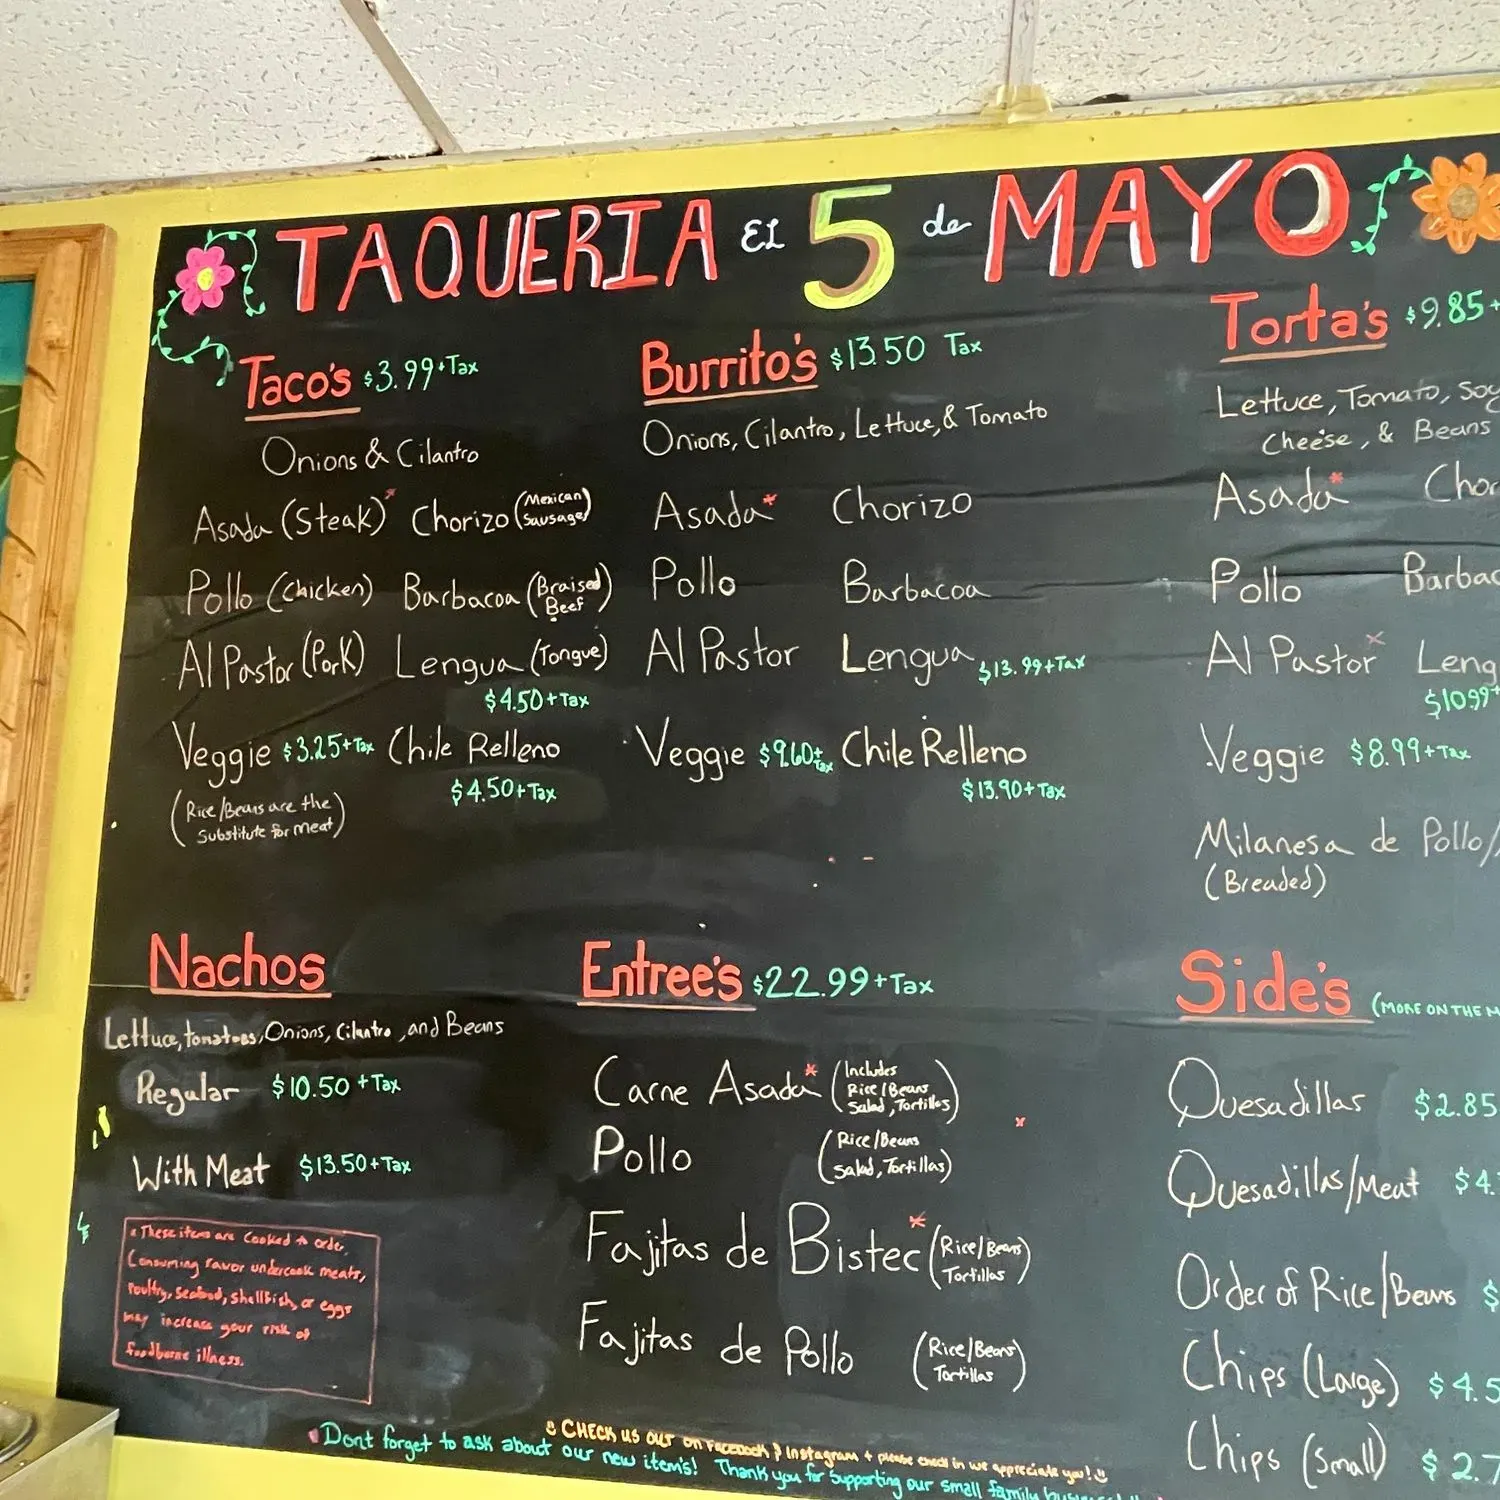 TAQUERIA El 5 de MAYO
Taco's $3.99+Tax
Onions & Cilantro
Asada (Steak)* Chorizo (Mexican Sausage)
Pollo (Chicken) Barbacoa (Braised Beef)
Al Pastor (Pork) Lengua (Tongue)
$4.50+Tax
Veggie $3.25+Tax Chile Relleno
$4.50+Tax
(Rice/Beans are the
Substitute for meat)
Burrito's $13.50 Tax
Onions, Cilantro, Lettuce, & Tomato
Asada* Chorizo
Pollo Barbacoa
Al Pastor Lengua $13.99+Tax
Veggie $9.60+Tax Chile Relleno
$13.90+Tax
Torta's $9.85+
Lettuce, Tomato, Soy
Cheese, & Beans
Asada* Chor
Pollo Barbac
Al Pastor* Leng
$10.99+
Veggie $8.99+Tax
Milanesa de Pollo/
(Breaded)
Nachos
Lettuce, tomatoes, Onions, Cilantro, and Beans
Regular $10.50 +Tax
With Meat $13.50+Tax
* These items are Cooked to order.
Consuming raw or undercook meats,
Poultry, Seafood, shellfish, or eggs
may increase your risk of
foodborne illness.
Entree's $22.99+Tax
Carne Asada* (Includes Rice/Beans Salad, Tortillas)
Pollo (Rice/Beans Salad, Tortillas)
Fajitas de Bistec* (Rice/Beans Tortillas)
Fajitas de Pollo (Rice/Beans Tortillas)
Side's (MORE ON THE M
Quesadillas $2.85
Quesadillas/Meat $4.
Order of Rice/Beans $
Chips (Large) $4.5
Chips (Small) $2.7
CHECK US OUT on FACEBOOK & Instagram + please check in we appreciate you!
Dont forget to ask about our new item's! Thank you for Supporting our small family business!